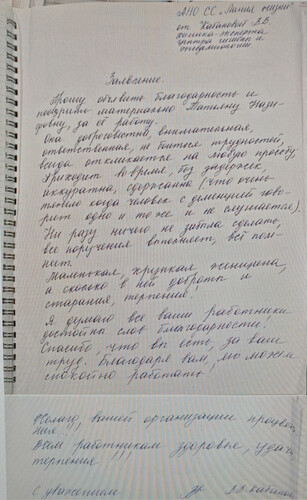 АНО СС „Линия жизни"
от Кабановой В.В.
химика-эксперта
центра гигиены и
эпидемиологии
Заявление.
Прошу объявить благодарность и
поощрить материально Татьяну Нази-
фовну, за её работу.
Она добросовестна, внимательная,
ответственная, не боится трудностей,
всегда откликается на любую просьбу.
Приходит во время, без задержек,
аккуратна, сдержанна (что очень
тяжело когда человек с деменцией гово-
рит одно и то же и не слушается).
Ни разу ничего не забыла сделать,
все поручения выполняет, всё пом-
нит.
Маленькая, хрупкая женщина,
а сколько в ней доброты и
старания, терпения!
Я думаю все ваши работники
достойны слов благодарности!
Спасибо, что вы есть, за ваш
труд. Благодаря вам, мы можем
спокойно работать
Желаю, вашей организации процвета-
ния,
Всем работникам здоровья, удачи
терпения.
С уважением В.В. Кабанова